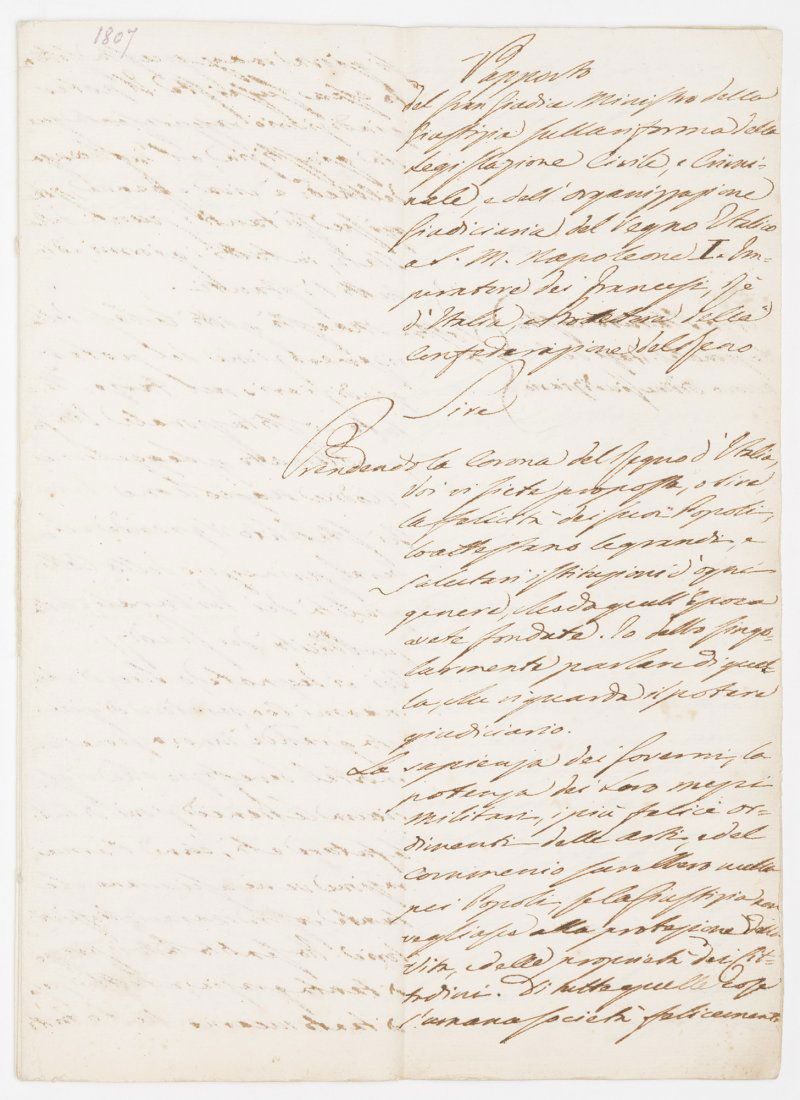 1807
Rapporto
del Gran Giudice Ministro della
Giustizia sulla riforma della
Legislazione Civile, e Crimi-
nale, e dell'organizzazione
Giudiciaria del Regno d'Italia
a S. M. Napoleone I. Im-
peratore dei Francesi, Rè
d'Italia, e Protettore della
Confederazione del Reno.
Sire
Prendendo la Corona del Regno d'Italia,
Voi vi siete proposto, o Sire
la felicità dei suoi Popoli,
lo attestano le grandi, e
salutari istituzioni d'ogni
genere, che da quell'Epoca
avete fondate. Io debbo singo-
larmente parlare di quel-
la, che riguarda il potere
giudiciario.
La sapienza dei Governi, la
potenza dei loro mezzi
militari, i più felici or-
dinamenti delle arti, e del
commercio sarebbero nulla
pei Popoli, se la Giustizia non
vegliasse alla protezione della
vita, e delle proprietà dei Cit-
tadini. Di tutte quelle cose
l'umana società felicemente